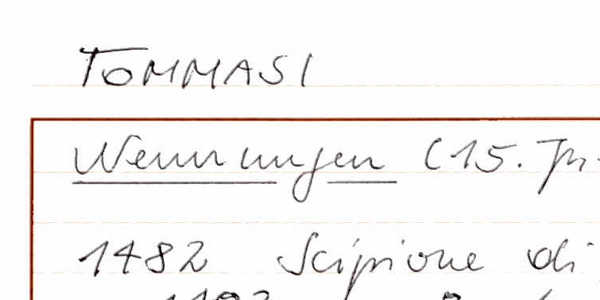 TOMMASI
Nennungen (15. Jh.
1482 Scipione di